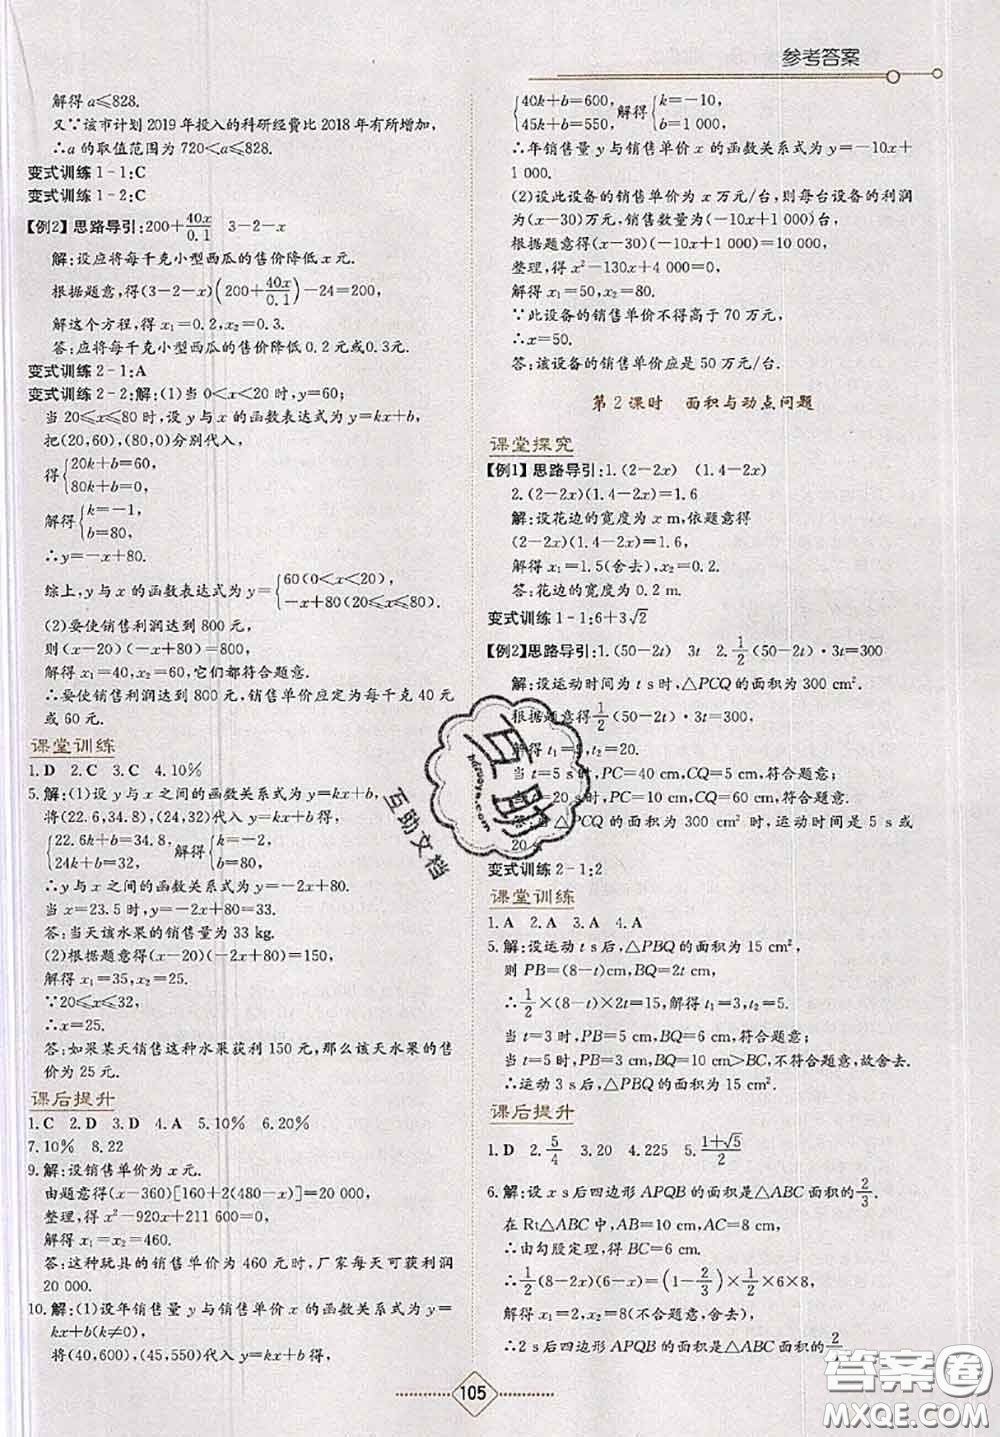 参考答案
解得 a≤828.
又∵该市计划 2019 年投入的科研经费比 2018 年有所增加,
∴a 的取值范围为 720<a≤828.
变式训练 1-1:C
变式训练 1-2:C
【例2】思路导引:200+40x/0.1 3-2-x
解:设应将每千克小型西瓜的售价降低 x 元.
根据题意,得(3-2-x)(200+40x/0.1)-24=200,
解这个方程,得 x₁=0.2,x₂=0.3.
答:应将每千克小型西瓜的售价降低 0.2 元或 0.3 元.
变式训练 2-1:A
变式训练 2-2:解:(1)当 0<x<20 时,y=60;
当 20≤x≤80 时,设 y 与 x 的函数表达式为 y=kx+b,
把(20,60),(80,0)分别代入,
得{20k+b=60,
80k+b=0,
解得{k=-1,
b=80,
∴y=-x+80.
综上,y 与 x 的函数表达式为 y={60(0<x<20),
-x+80(20≤x≤80).
(2)要使销售利润达到 800 元,
则(x-20)(-x+80)=800,
解得 x₁=40,x₂=60,它们都符合题意;
∴要使销售利润达到 800 元,销售单价应定为每千克 40 元
或 60 元.
课堂训练
1.D 2.C 3.C 4.10%
5.解:(1)设 y 与 x 之间的函数关系式为 y=kx+b,
将(22.6,34.8),(24,32)代入 y=kx+b 得,
{22.6k+b=34.8, 解得{k=-2,
24k+b=32, b=80,
∴y 与 x 之间的函数关系式为 y=-2x+80.
当 x=23.5 时,y=-2x+80=33.
答:当天该水果的销售量为 33 kg.
(2)根据题意得(x-20)(-2x+80)=150,
解得 x₁=35,x₂=25.
∵20≤x≤32,
∴x=25.
答:如果某天销售这种水果获利 150 元,那么该天水果的售
价为 25 元.
课后提升
1.C 2.D 3.D 4.A 5.10% 6.20%
7.10% 8.22
9.解:设销售单价为 x 元.
由题意得(x-360)[160+2(480-x)]=20 000,
整理,得 x²-920x+211 600=0,
解得 x₁=x₂=460.
答:这种玩具的销售单价为 460 元时,厂家每天可获利润
20 000.
10.解:(1)设年销售量 y 与销售单价 x 的函数关系式为 y=
kx+b(k≠0),
将(40,600),(45,550)代入 y=kx+b 得,
{40k+b=600, 解得{k=-10,
45k+b=550, b=1 000,
∴年销售量 y 与销售单价 x 的函数关系式为 y=-10x+
1 000.
(2)设此设备的销售单价为 x 万元/台,则每台设备的利润
为(x-30)万元,销售数量为(-10x+1 000)台,
根据题意得(x-30)(-10x+1 000)=10 000,
整理,得 x²-130x+4 000=0,
解得 x₁=50,x₂=80.
∵此设备的销售单价不得高于 70 万元,
∴x=50.
答:该设备的销售单价应是 50 万元/台.
第 2 课时 面积与动点问题
课堂探究
【例1】思路导引:1.(2-2x) (1.4-2x)
2.(2-2x)(1.4-2x)=1.6
解:设花边的宽度为 x m,依题意得
(2-2x)(1.4-2x)=1.6,
解得 x₁=1.5(舍去),x₂=0.2.
答:花边的宽度为 0.2 m.
变式训练 1-1:6+3√2
【例2】思路导引:1.(50-2t) 3t 2.1/2(50-2t)·3t=300
解:设运动时间为 t s时,△PCQ的面积为 300 cm².
根据题意得1/2(50-2t)·3t=300,
解得 t₁=5,t₂=20.
当 t=5 s时,PC=40 cm,CQ=5 cm,符合题意;
s时,PC=10 cm,CQ=20 cm,符合题意.
的面积为 300 cm² 时,运动时间是 5 s 或
20
变式训练 2-1:2
课堂训练
1.A 2.A 3.A 4.A
5.解:设运动 t s后,△PBQ的面积为 15 cm²,
则 PB=(8-t)cm,BQ=2t cm,
∴1/2×(8-t)×2t=15,解得 t₁=3,t₂=5.
当 t=3 时,PB=5 cm,BQ=6 cm,符合题意;
当 t=5 时,PB=3 cm,BQ=10 cm>BC,不符合题意,故舍去.
∴运动 3 s后,△PBQ 的面积为 15 cm².
课后提升
1.D 2.5/4 3.20 4.225 5.(1+√5)/2
6.解:设 x s后四边形 APQB 的面积是△ABC 面积的2/3.
在 Rt△ABC 中,AB=10 cm,AC=8 cm,
∴由勾股定理,得 BC=6 cm.
∴1/2(8-2x)(6-x)=(1-2/3)×1/2×6×8,
解得 x₁=2,x₂=8(不合题意,舍去),
∴2 s后四边形 APQB 的面积是△ABC 面积的2/
105
互助
hdzuoye.com
互助文档
答案圈
MXQE.COM